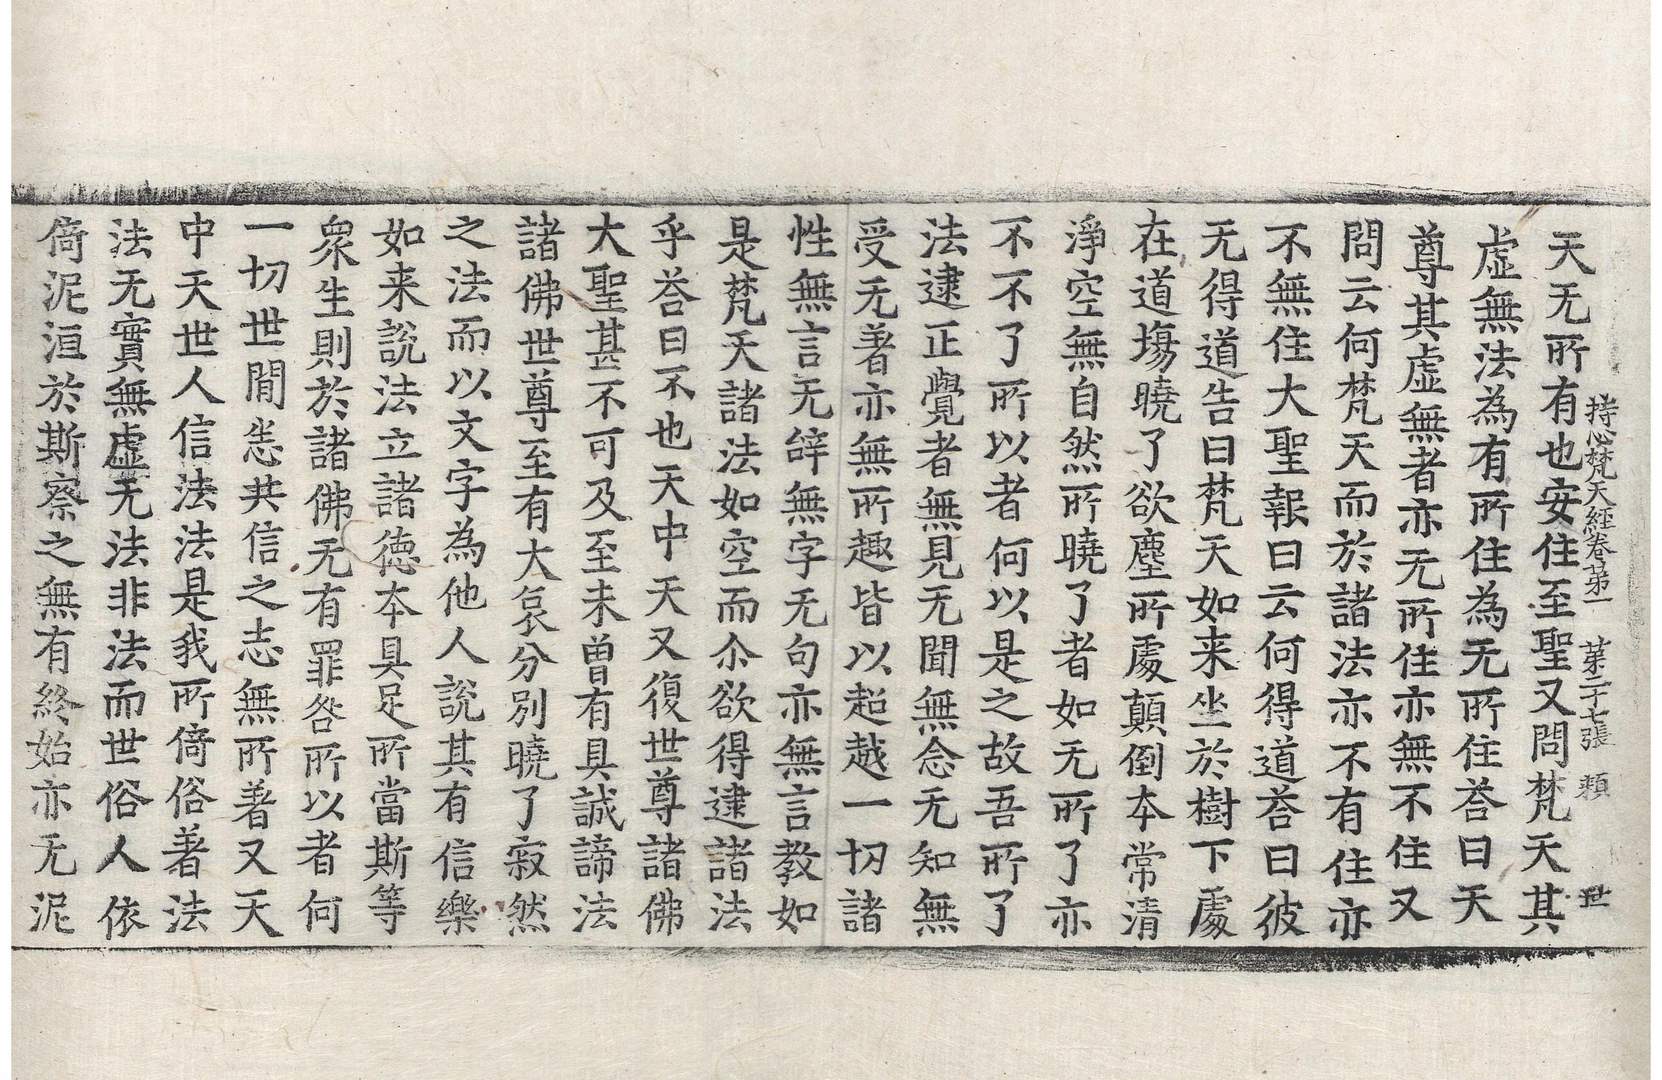 持心梵天經卷第一 第二十七張 頪 世
天无所有也安住至聖又問梵天其
虛無法為有所住為无所住荅曰天
尊其虛無者亦无所住亦無不住又
問云何梵天而於諸法亦不有住亦
不無住大聖報曰云何得道荅曰彼
无得道告曰梵天如来坐於樹下處
在道場曉了欲塵所處顛倒本常清
淨空無自然所曉了者如无所了亦
不不了所以者何以是之故吾所了
法逮正覺者無見无聞無念无知無
受无著亦無所趣皆以超越一切諸
性無言无辞無字无句亦無言教如
是梵天諸法如空而尒欲得逮諸法
乎荅曰不也天中天又復世尊諸佛
大聖甚不可及至未曾有具誠諦法
諸佛世尊至有大哀分別曉了寂然
之法而以文字為他人說其有信樂
如来說法立諸德本具足所當斯等
衆生則於諸佛无有罪咎所以者何
一切世閒恙共信之志無所著又天
中天世人信法法是我所倚俗著法
法无實無虛无法非法而世俗人依
倚泥洹於斯察之無有終始亦无泥